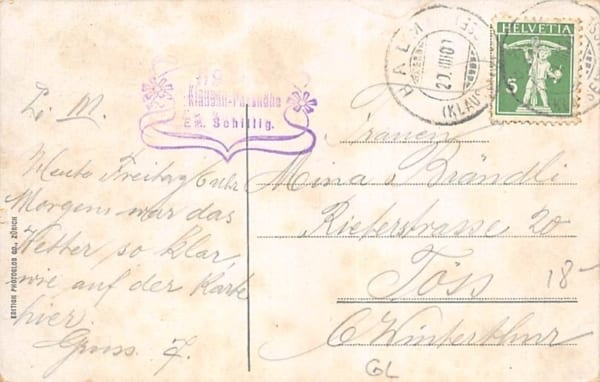 HELVETIA
5
(KLAUSEN)
Klausen-Passhöhe
Em. Schillig.
L. M.
Heute Freitag 6 Uhr
Morgens war das
Wetter so klar,
wie auf der Karte
hier.
Gruss. J.
Frauen
Mina Brändli
Rieterstrasse 20
Töss
Winterthur
18-
GL
EDITION PHOTOGLOB CO., ZÜRICH